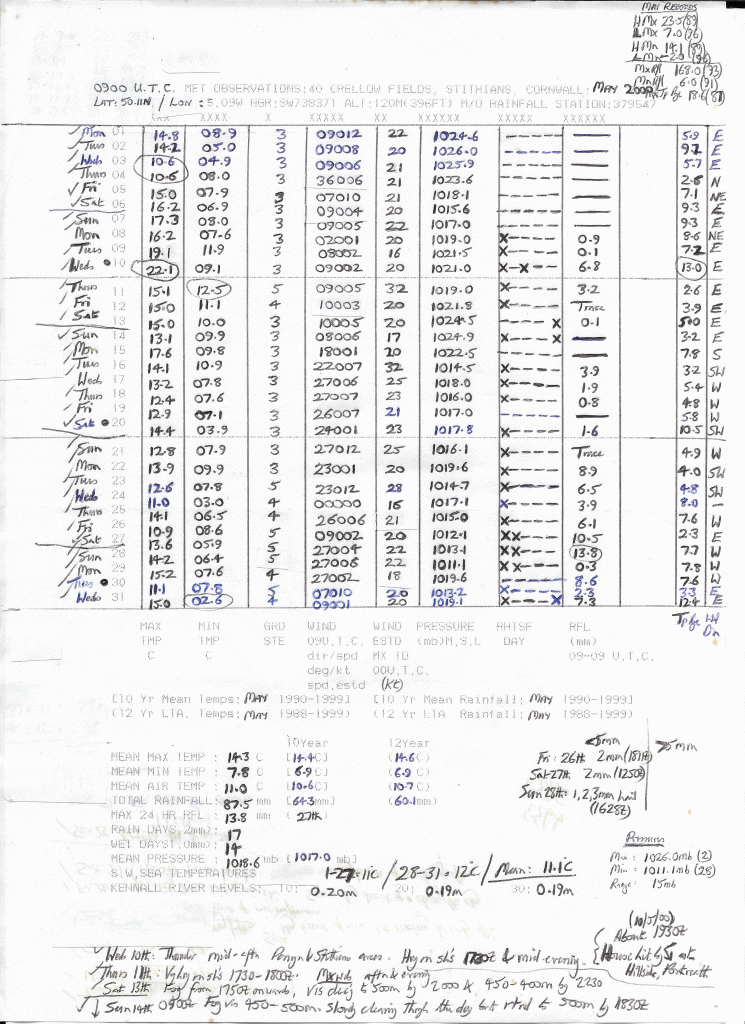 MAY RECORDS
HMx 23.5(89)
LMx 7.0(96)
HMn 14.1(89)
LMn -2.0(96)
MxRfl 168.0(93)
MnRfl 6.0(91)
MxTp Rge 18.6(89)
0900 U.T.C. MET OBSERVATIONS:40 CRELLOW FIELDS, STITHIANS, CORNWALL: MAY 2000
LAT:50.11N / LON :5,09W NGR:SW738371 ALT:120M(396FT) M/O RAINFALL STATION:379547
XX XXXX X XXXXX XX XXXXXX XXXXX XXXXXX
Mon 01 14.8 08.9 3 09012 22 1024.6 ----- — 5.9 E
Tues 02 14.2 05.0 3 09008 20 1026.0 ----- — 9.2 E
Weds 03 10.6 04.9 3 09006 21 1025.9 ----- — 5.7 E
Thurs 04 10.6 08.0 3 36006 21 1023.6 ----- — 2.6 N
Fri 05 15.0 07.9 3 07010 21 1018.1 ----- — 7.1 NE
Sat 06 16.2 06.9 3 09004 20 1015.6 ----- — 9.3 E
Sun 07 17.3 08.0 3 09005 22 1017.0 ----- — 9.3 E
Mon 08 16.2 07.6 3 02001 20 1019.0 X---- 0.9 8.6 NE
Tues 09 19.1 11.9 3 08002 16 1021.5 X---- 0.1 7.2 E
Weds 10 22.1 09.1 3 09002 20 1021.0 X-X-- 6.8 13.0 E
Thurs 11 15.1 12.5 5 09005 32 1019.0 X---- 3.2 2.6 E
Fri 12 15.0 11.1 4 10003 20 1021.8 X---- Trace 3.9 E
Sat 13 15.0 10.0 3 10005 20 1024.5 ----X 0.1 5.0 E
Sun 14 13.1 09.9 3 08006 17 1024.9 ----X — 3.2 E
Mon 15 17.6 09.8 3 18001 20 1022.5 ----- — 7.8 S
Tues 16 14.1 10.9 3 22007 32 1014.5 X---- 3.9 3.2 SW
Weds 17 13.2 07.8 3 27006 25 1018.0 X---- 1.9 5.4 W
Thurs 18 12.4 07.6 3 27007 23 1016.0 X---- 0.8 4.8 W
Fri 19 12.9 07.1 3 26007 21 1017.0 ----- — 5.8 W
Sat 20 14.4 03.9 3 24001 23 1017.8 X---- 1.6 10.5 SW
Sun 21 12.8 07.9 3 27012 25 1016.1 X---- Trace 4.9 W
Mon 22 13.9 09.9 3 23001 20 1019.6 X---- 8.9 4.0 SW
Tues 23 12.6 07.8 3 23012 28 1014.7 X---- 6.5 4.8 SW
Weds 24 11.0 03.0 4 00000 16 1017.1 X---- 3.9 8.0 —
Thurs 25 14.1 06.5 4 26006 21 1015.0 X---- 6.1 7.6 W
Fri 26 10.9 08.6 5 09002 20 1012.1 XX--- 10.5 2.3 E
Sat 27 13.6 05.9 5 27004 22 1013.1 XX--- 13.8 7.7 W
Sun 28 14.2 06.4 5 27006 22 1011.1 XX--- 0.3 7.8 W
Mon 29 15.2 07.6 4 27002 18 1019.6 ----- 8.6 7.6 W
Tues 30 11.1 07.8 5 07010 20 1013.2 X---- 2.3 3.3 E
Weds 31 15.0 02.6 4 09001 20 1019.1 X---X 7.3 12.4 E
MAX MIN GRD WIND WIND PRESSURE RHTSF RFL Tp Rge Wd Dn
TMP TMP STE 09U,T,C. ESTD (mb)M,S,L DAY (mm)
C C dir/spd MX TO 09-09 U,T,C.
deg/kt 00U,T,C.
spd,estd (kt)
[10 Yr Mean Temps: MAY 1990-1999] [10 Yr Mean Rainfall: MAY 1990-1999]
(12 Yr LTA, Temps: MAY 1988-1999) (12 Yr LTA Rainfall: MAY 1988-1999)
10Year 12Year
MEAN MAX TEMP : 14.3 C [14.4C] (14.6C)
MEAN MIN TEMP : 7.8 C [6.9C] (6.9C)
MEAN AIR TEMP : 11.0 C [10.6C] (10.7C)
TOTAL RAINFALL: 87.5 mm [64.3mm] (60.1mm)
MAX 24 HR RFL : 13.8 mm (27th)
RAIN DAYS(.2mm): 17
WET DAYS(1.0mm): 14
MEAN PRESSURE : 1018.6 mb [1017.0 mb]
S.W,SEA TEMPERATURES 1-27=11°C / 28-31=12°C / Mean: 11.1°C
KENNALL RIVER LEVELS: 10: 0.20m 20: 0.19m 30: 0.19m
<5mm >5mm
Fri: 26th 2mm (1817Z)
Sat 27th 2mm (1250Z)
Sun 28th: 1,2,3mm hail
(1628Z)
Pressures
Max : 1026.0mb (2)
Min : 1011.1mb (28)
Range : 15mb
(10/5/00)
About 1930Z
House hit by
Hillside,
Wed 10th: Thunder mid-aftn Penryn & Stithians areas. Hvy rn sh's 1730Z & mid-evening.
Thurs 11th: Vy hvy rn sh's 1730-1800Z. Mx wds aftn & evening
Sat 13th Fog from 1750Z onwards, vis decg to 500m by 2000 & 450-400m by 2230
Sun 14th 0900Z Fog vis 450-500m. Slowly clearing thrgh the day but rtnd to 500m by 1830Z